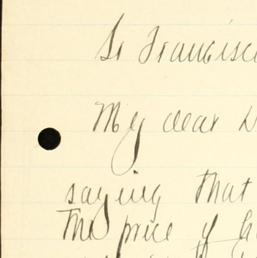 Sn Francisc
My dear
saying that
the price of